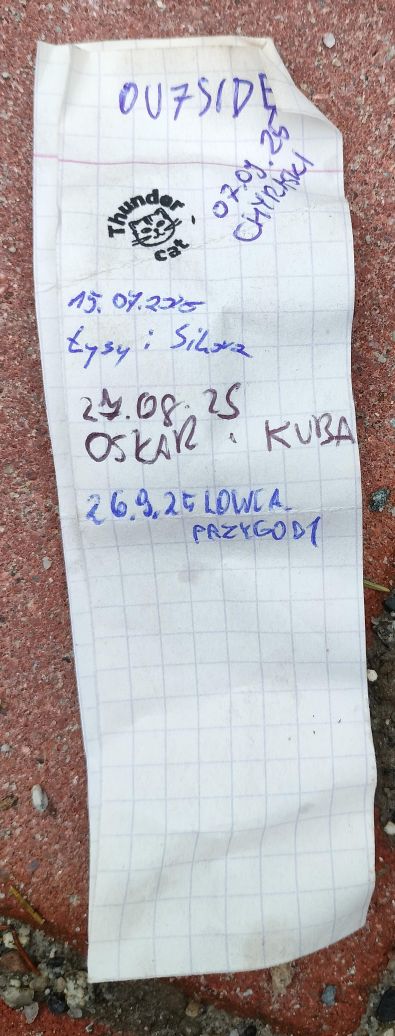 OU7SIDE
07.09.25
Thunder
cat
15.07.2025
Łysy i Sikora
27.08.25
OSKAR i KUBA
26.9.25 LOWCA
PRZYGODY